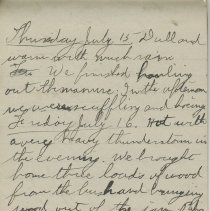 Thursday July 15 Dull and
warm with much rain
We finished hauling
out the manure; In the afternoon
we were scuffling and hoeing
Friday July 16. Hot with
a very heavy thunderstorm in
the evening. We brought
home three loads of wood
from the bush and
wood out of the